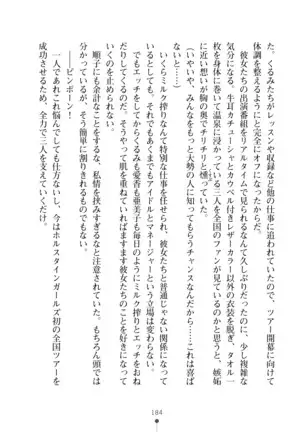 た。くるみたちがレッスンや収録など他の仕事に追われていたので、ツアー開幕に向けて
体調を整えるようにと完全にオフになったからだ。
彼女たちの出演番組をリアルタイムで見られるなんて久しぶりだったのに、少し複雑な
気分になる。牛耳カチューシャとカウベル付きレザーカラー以外の衣装を脱ぎ、タオル一
枚を身体に巻いて温泉に浸かっている三人を全国のファンが見ているのかと思うと、嫉妬
に近い想いが胸の奥でチリチリと燻っていた。
（いやいや、みんなをもっと大勢の人に知ってもらうチャンスなんだから……これは喜ば
ないと）
いくらミルク搾りなんて特別な仕事を任せられ、彼女たちと普通じゃない関係になって
も、自分たちはあくまでもアイドルとマネージャーという立場は変わらない。
でもエッチをしてからくるみも愛香も亜美子も毎日のようにミルク搾りとエッチをおね
だりしてくるのだ。そうやって肌を重ねているとますます彼女たちの好きになって
いくのを止められない。
順子には余計なことだけど、私情を挟みすぎるなと注意されていた。もちろん頭では
分かっているが、そう簡単に割りきれるものでもない。
――ピンポーン！
一人であれこれ悩んでても仕方ないし、今はホルスタインガールズ初の全国ツアーを
成功させるために、全力で三人を支えていくだけだ。
184